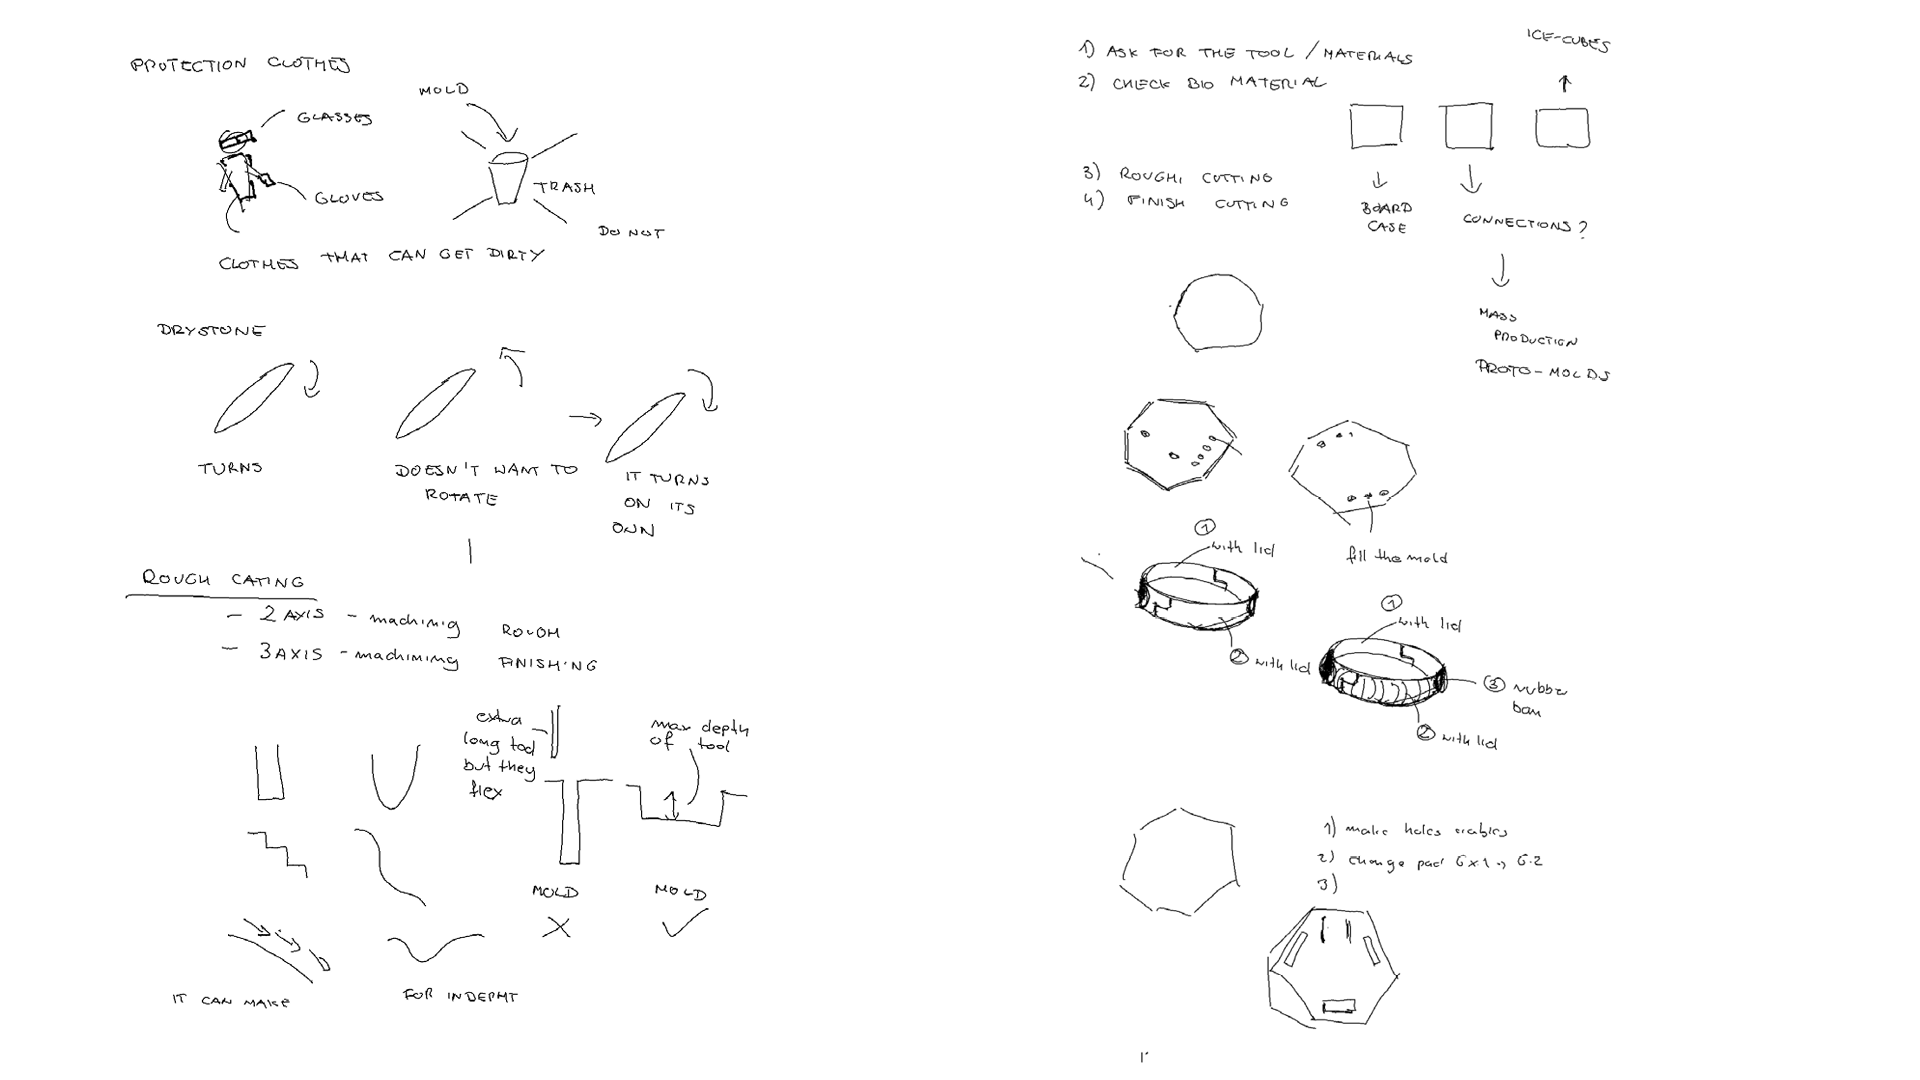 PROTECTION CLOTHES
GLASSES
GLOVES
CLOTHES THAT CAN GET DIRTY
MOLD
TRASH
DO NOT
DRYSTONE
TURNS
DOESN'T WANT TO
ROTATE
IT TURNS
ON ITS
OWN
ROUGH CATING
- 2 AXIS - machinig ROUGH
- 3 AXIS - machining FINISHING
extra
long tool
but they
flex
max depth
of tool
MOLD
MOLD
IT CAN MAKE
FOR INDEPHT
1) ASK FOR THE TOOL / MATERIALS
2) CHECK BIO MATERIAL
3) ROUGH CUTTING
4) FINISH CUTTING
ICE-CUBES
BOARD
CASE
CONNECTIONS?
MASS
PRODUCTION
PROTO-MOLDS
fill the mold
1
with lid
2 with lid
1
with lid
3 rubber
ban
2 with lid
1) make holes
2) change pad 6x1
3)